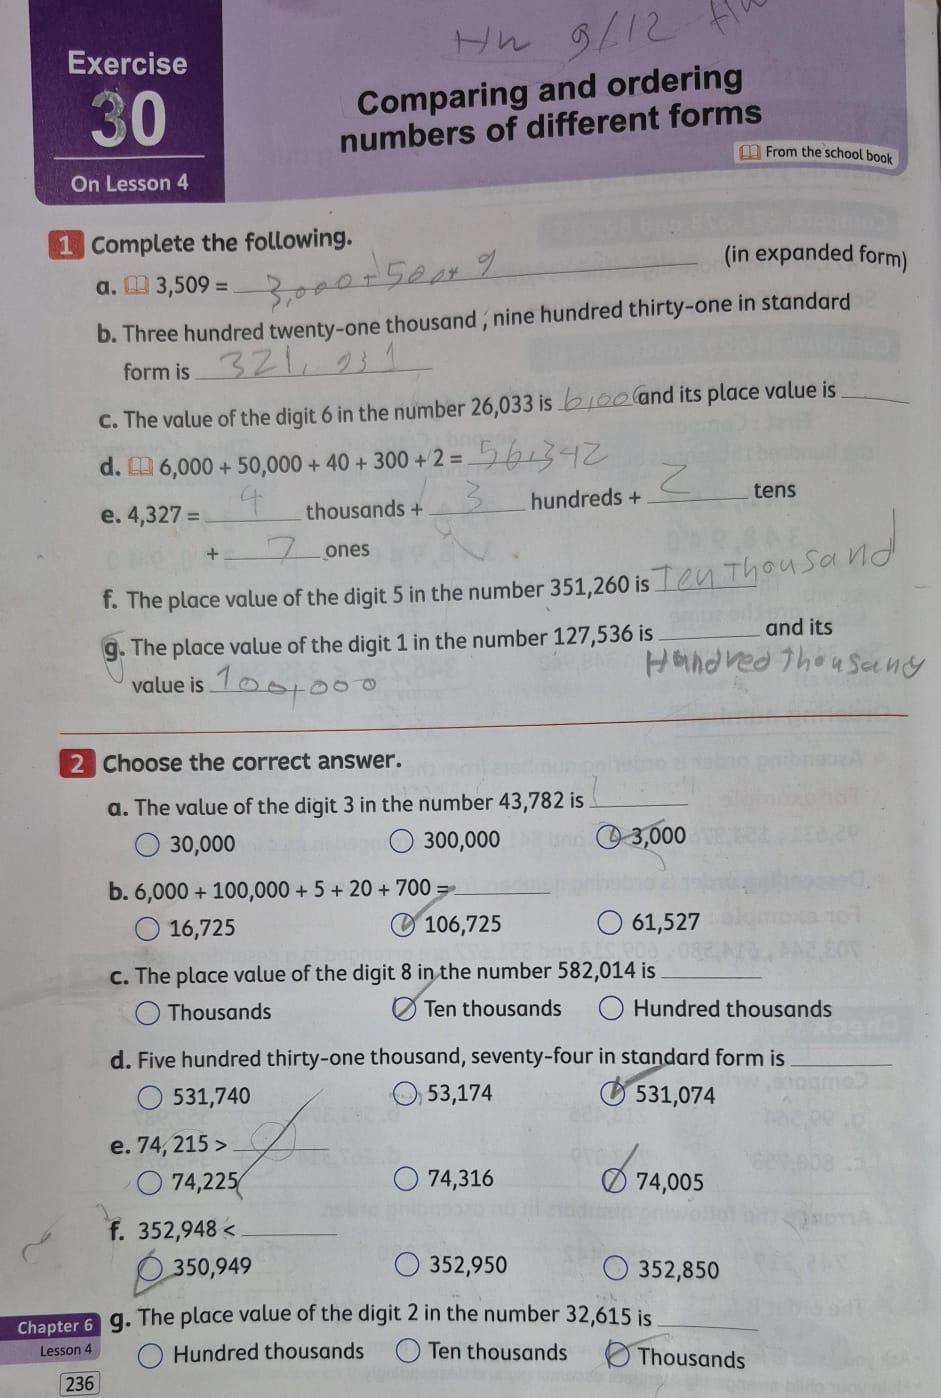 Hw 9/12 Hw
Exercise
30
On Lesson 4
Comparing and ordering
numbers of different forms
From the school book
1 Complete the following.
a. 3,509 = 3,000 + 500 + 9 (in expanded form)
b. Three hundred twenty-one thousand , nine hundred thirty-one in standard
form is 321, 931
c. The value of the digit 6 in the number 26,033 is 6,000 and its place value is ____
d. 6,000 + 50,000 + 40 + 300 + 2 = 56,342
e. 4,327 = 4 thousands + 3 hundreds + 2 tens
+ 7 ones
f. The place value of the digit 5 in the number 351,260 is Ten Thousand
g. The place value of the digit 1 in the number 127,536 is ____ and its
Hundred Thousand
value is 100,000
2 Choose the correct answer.
a. The value of the digit 3 in the number 43,782 is ____
30,000 300,000 3,000
b. 6,000 + 100,000 + 5 + 20 + 700 = ____
16,725 106,725 61,527
c. The place value of the digit 8 in the number 582,014 is ____
Thousands Ten thousands Hundred thousands
d. Five hundred thirty-one thousand, seventy-four in standard form is ____
531,740 53,174 531,074
e. 74, 215 > ____
74,225 74,316 74,005
f. 352,948 < ____
350,949 352,950 352,850
g. The place value of the digit 2 in the number 32,615 is ____
Hundred thousands Ten thousands Thousands
Chapter 6
Lesson 4
236